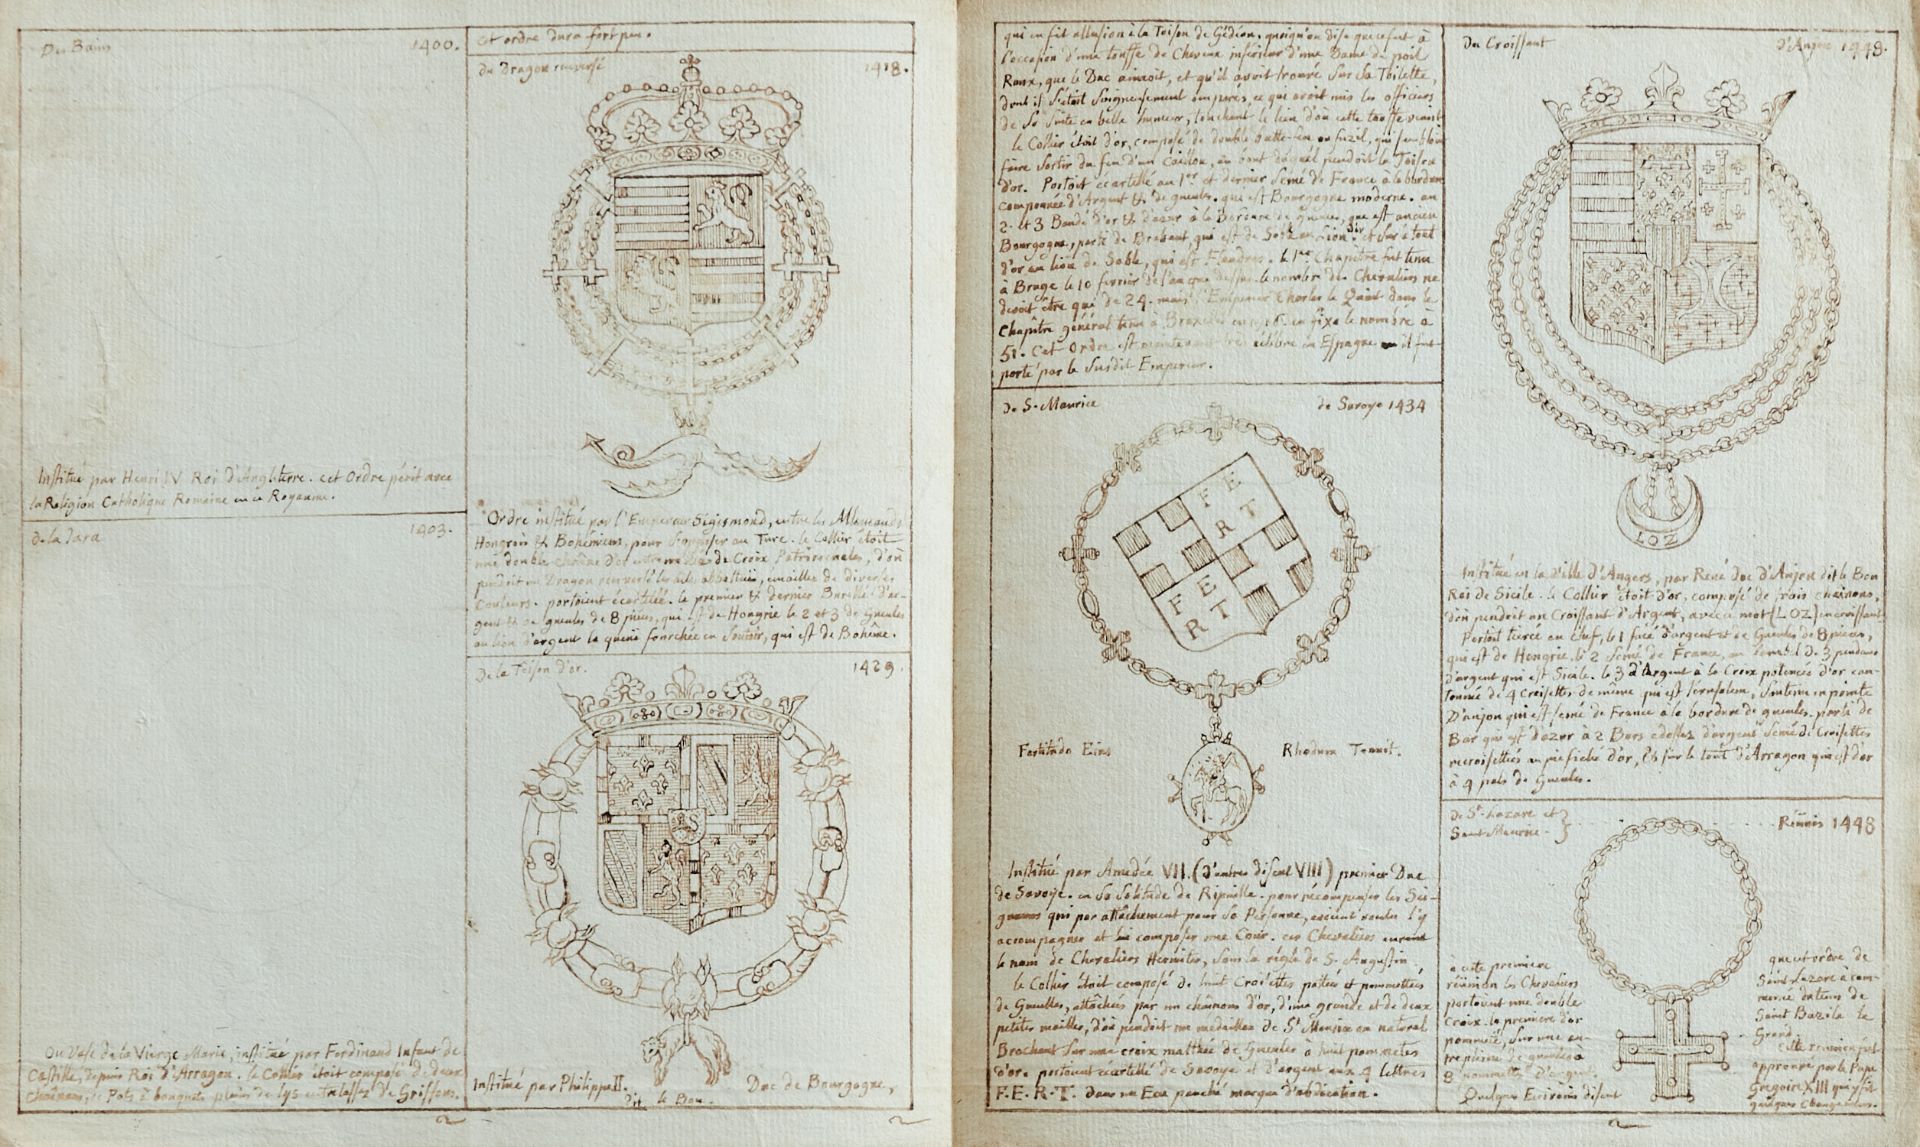 Du Bain 1400.
Institué par Henri IV Roi d'Angleterre. cet Ordre périt avec
la Religion Catholique Romaine en ce Royaume.
De la Jara 1403.
Ou Vase de la Vierge Marie, institué par Ferdinand Infant de
Castille, depuis Roi d'Arragon. le Collier étoit composé de deux
Chainons, de Pots à bouquets pleins de lys entrelassez de Griffons.
cet ordre dura fort peu.
Du Dragon renversé 1418.
Ordre institué par l'Empereur Sigismond, entre les Allemands
Hongrois & Bohémiens, pour s'opposer au Turc. le Collier étoit
une double chaîne d'or entremêlée de Croix Patriarcales, d'où
pendoit un Dragon renversé les aîles abbattues, émaillés de diverses
Couleurs. portoient écartellé. le premier & dernier Burellé d'ar-
gent & de gueules de 8 pièces, qui est de Hongrie le 2 et 3 de Gueules
au lion d'argent la queue fourchée en Sautoir, qui est de Bohême.
De la Toison d'or. 1429.
Institué par Philippe II. Duc de Bourgogne,
dit le Bon.
2
qui en fit allusion à la Toison de Gédéon. quoiqu'on dise que ce fut à
l'occasion d'une touffe de Cheveux inférieur d'une Dame de poil
Roux, que le Duc aimoit, et qu'il avoit trouvé sur sa Toilette,
dont il s'étoit soigneusement emparés, ce qui avoit mis les officiers
de sa suite en belle humeur, touchant le lieu d'où cette touffe venoit
le Collier étoit d'or, composé de double batte-feu ou fuzil, qui sembloit
faire sortir du feu d'un Caillou, au bout duquel pendoit la Toison
d'or. Portoit écartellé au 1er et dernier semé de France à la bordure
componnée d'Argent & de gueules. qui est Bourgogne moderne. au
2. et 3 Bandé d'or & d'azur à la Bordure de Gueules, que est ancien
Bourgogne, parti de Brabant, qui est de Sable au Lion d'or et sur le tout
d'or au lion de Sable, qui est Flandres. le 1er Chapitre fut tenu
à Bruge le 10 fevrier de l'an que dessus. le nombre des Chevaliers ne
devoit être que de 24. mais l'Empereur Charles le Quint dans le
Chapitre général tenu à Bruxelles en fixa le nombre à
51. Cet Ordre est maintenant très célèbre en Espagne où il fut
porté par le susdit Empereur.
De S. Maurice de Savoye 1434
FE
RT
FE
RT
Fortitudo Eius Rhodum Tenuit.
Institué par Amedée VII. (d'autres disent VIII) premier Duc
de Savoye. en sa solitude de Ripaille. pour récompenser les Sei-
gneurs qui par attâchement pour sa Personne, avoient voulu l'y
accompagner et lui composer une Cour. ces Chevaliers eurent
le nom de Chevaliers Hermites, sous la régle de S. Augustin.
le Collier étoit composé de huit Croisettes patées et pommettées
de Gueulles, attâchées par un chaînons d'or, d'une grande et de deux
petites mailles, d'où pendoit une médaillon de St Maurice au naturel
Brochant sur une croix malthée de Gueules à huit pommettes
d'or. portoient écartellé de Savoye et d'argent aux 4 lettres
F.E.R.T. dans un Ecu panché marque d'abdication.
Du Croissant d'Anjou 1448.
LOZ
Institué en la Ville d'Angers, par René Duc d'Anjou dit le Bon
Roi de Sicile. le Collier étoit d'or, composé de trois chainons,
d'où pendoit un Croissant d'Argent, avec ce mot (LOZ) en croissant.
Portoit tiercé en chef, le 1 facé d'argent et de Gueules de 8 pièces,
qui est de Hongrie, le 2 semé de France, au lambel de 3 pendans
d'argent qui est Sicile. le 3 d'Argent à la Croix potencée d'or can-
tonnée de 4 croisettes de même qui est Jerusalem, soutenu en pointe
D'anjou qui est semé de France à la bordure de gueules. parti de
Bar qui est d'azur à 2 Bars adossez d'argent semé de Croisettes
recroisettées au pié fiché d'or, & sur le tout d'Arragon qui est d'or
à 4 pals de Gueules.
De St Lazare et
Saint Maurice. Réunis 1448
à cette premiere
réunion les Chevaliers
portoient une double
Croix. la premiere d'or
pommetté, sur une au-
tre pleine de gueules à
8 pommettes d'argent.
Quelques Ecrivains disent
que cet ordre de
Saint Lazare à com-
mencé du tems de
Saint Bazile le
Grand.
Cette reunion fut
approuvé par le Pape
Gregoire XIII qui y fit
quelques Changemens.
2